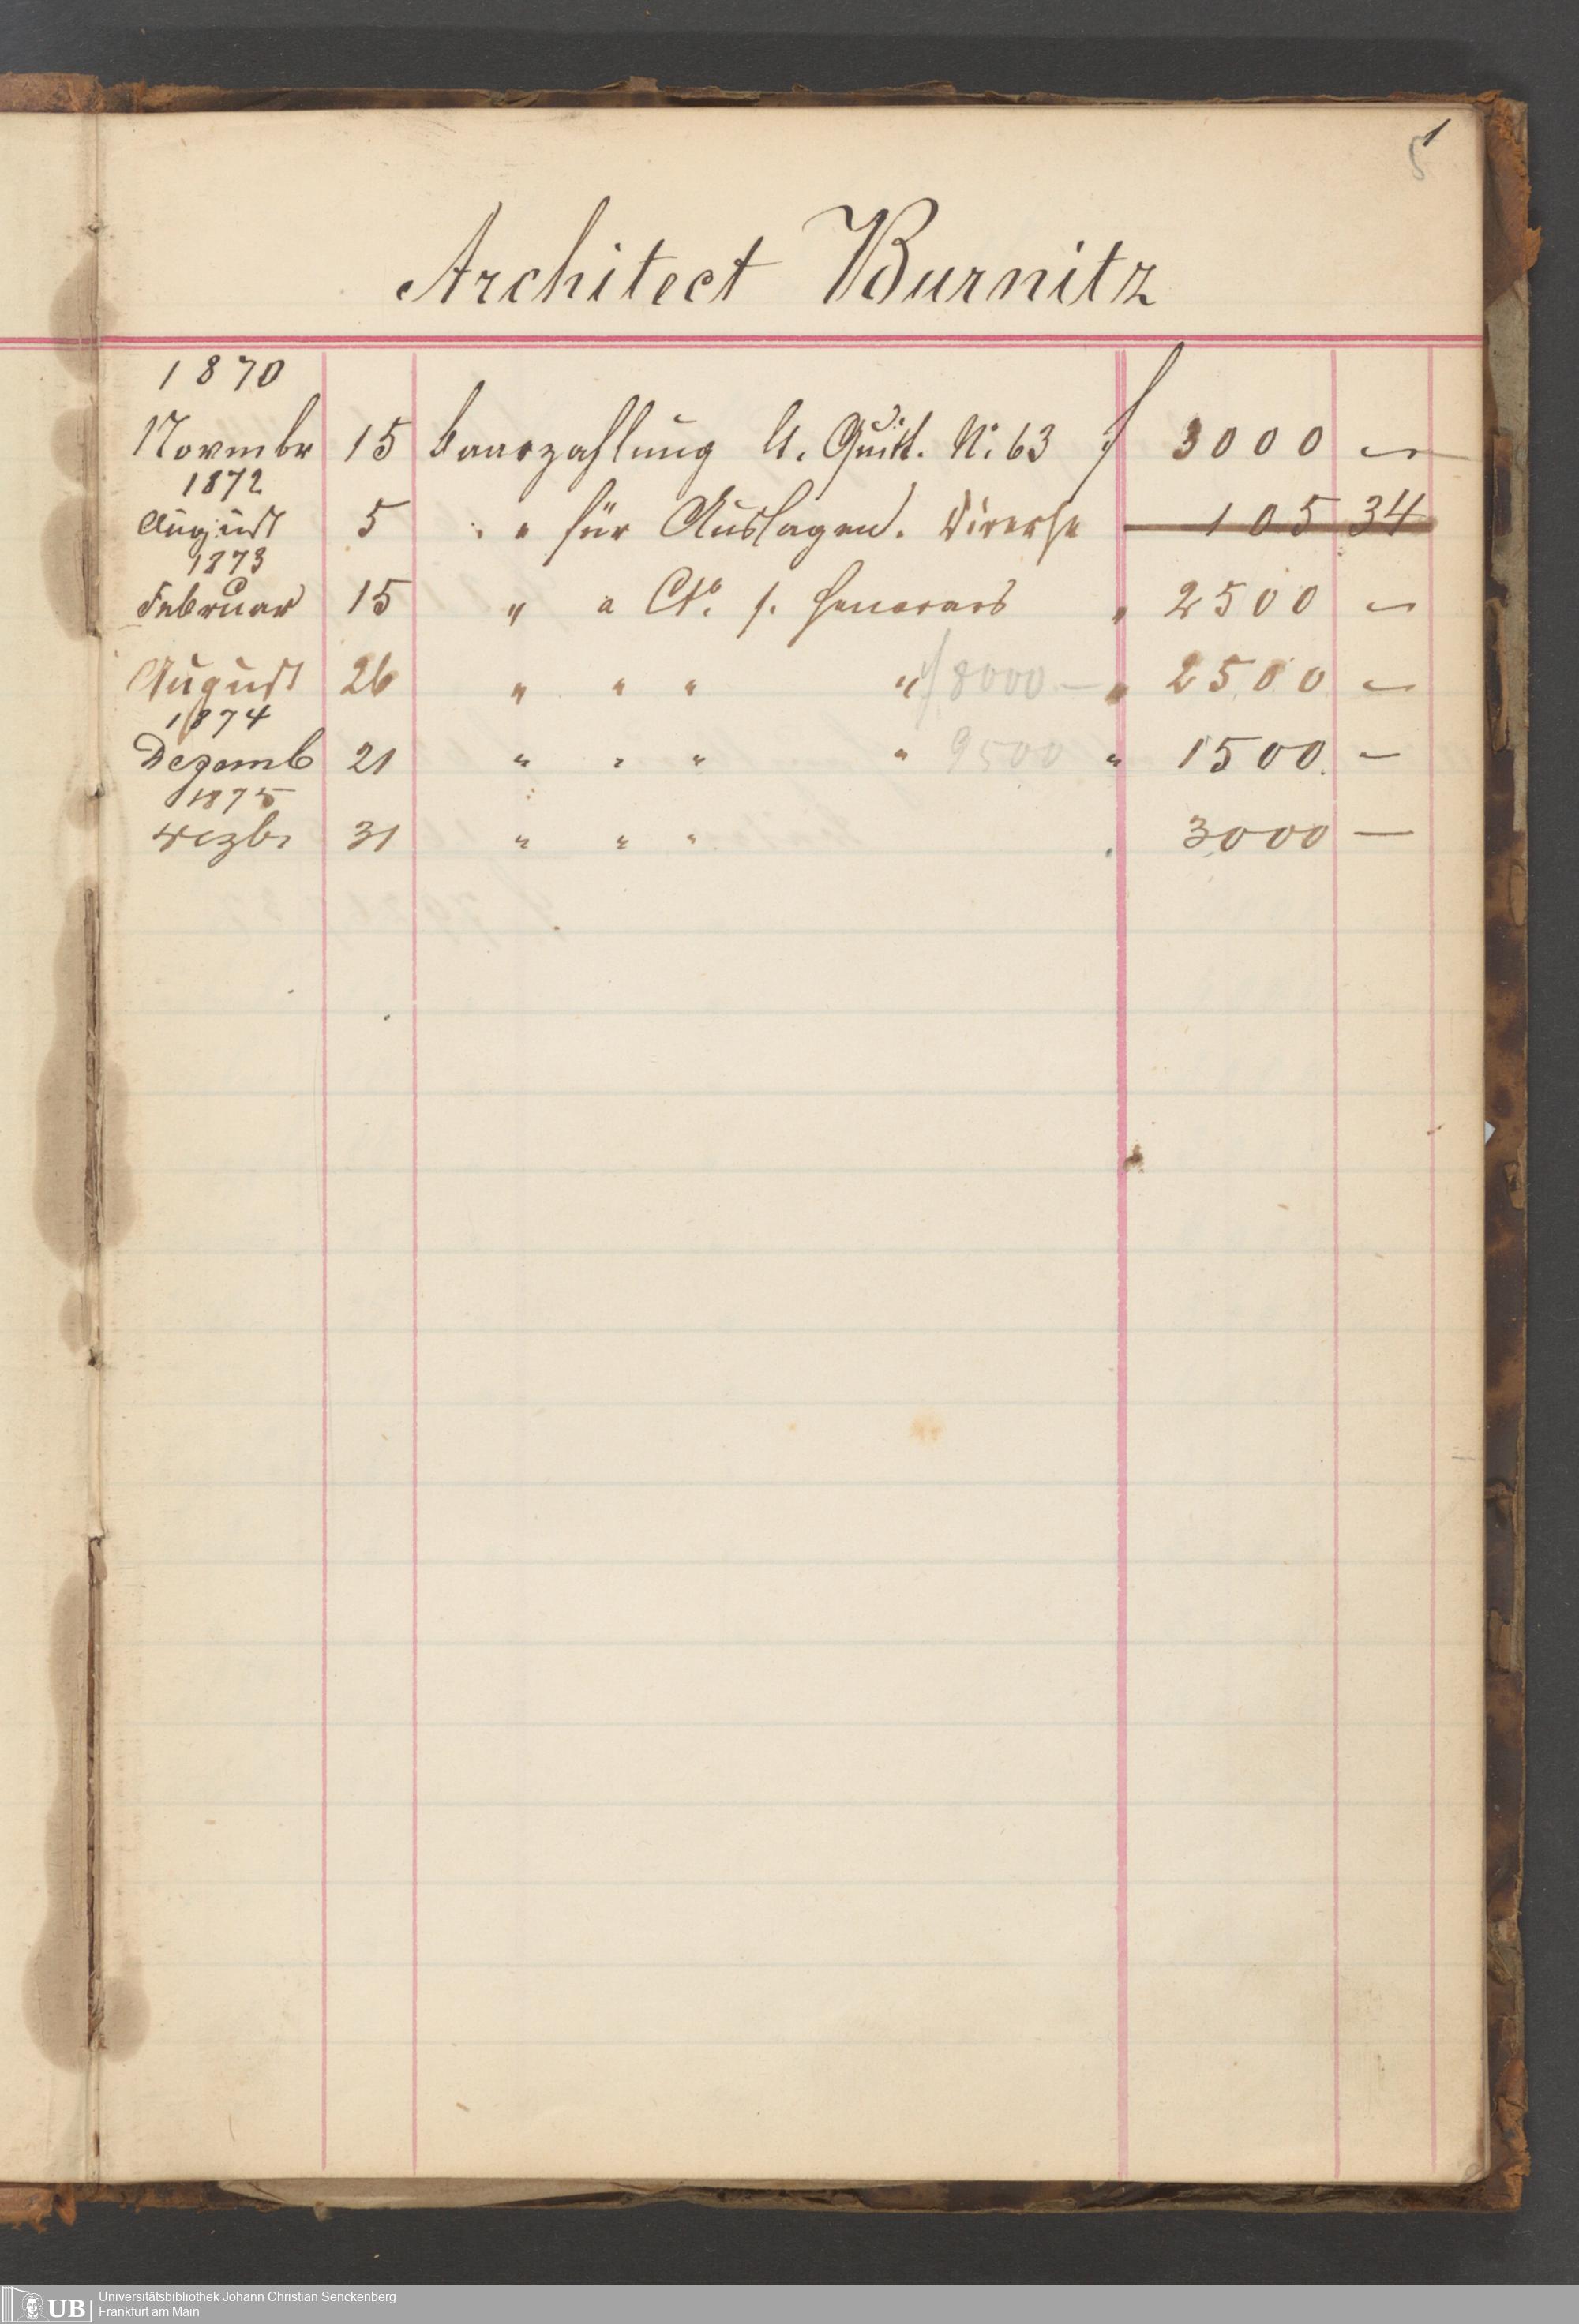 1
5
Architect Burnitz
1870
Novembr 15 Baarzahlung lt. Quitt. No. 63 f 3000 —
1872
August 5 " " für Auslagen. Diverse 105 34
1873
Februar 15 " a Cto. f. Honorars " 2500 —
August 26 " " " " f 8000.— " 2500 —
1874
Dezemb 21 " " " " 9500 " 1500. —
1875
Dezbr 31 " " " 3000 —
UB Universitätsbibliothek Johann Christian Senckenberg
Frankfurt am Main